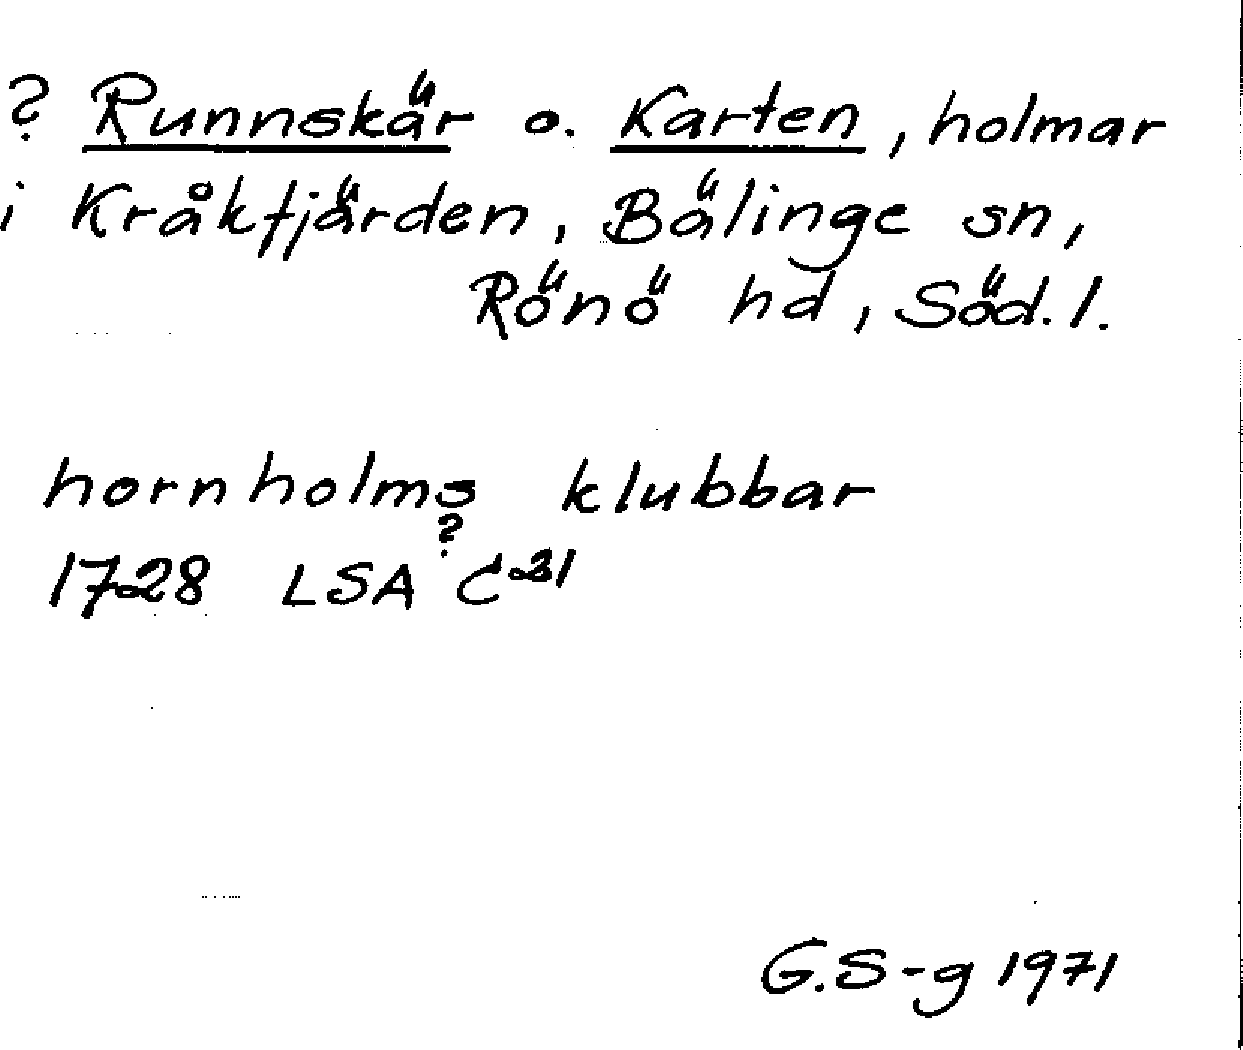 ? Runnskär o. Karten, holmar
i Kråkfjärden, Bälinge sn,
Rönö hd, Söd.l.
hornholms klubbar
?
1728 LSA C21
G.S-g 1971